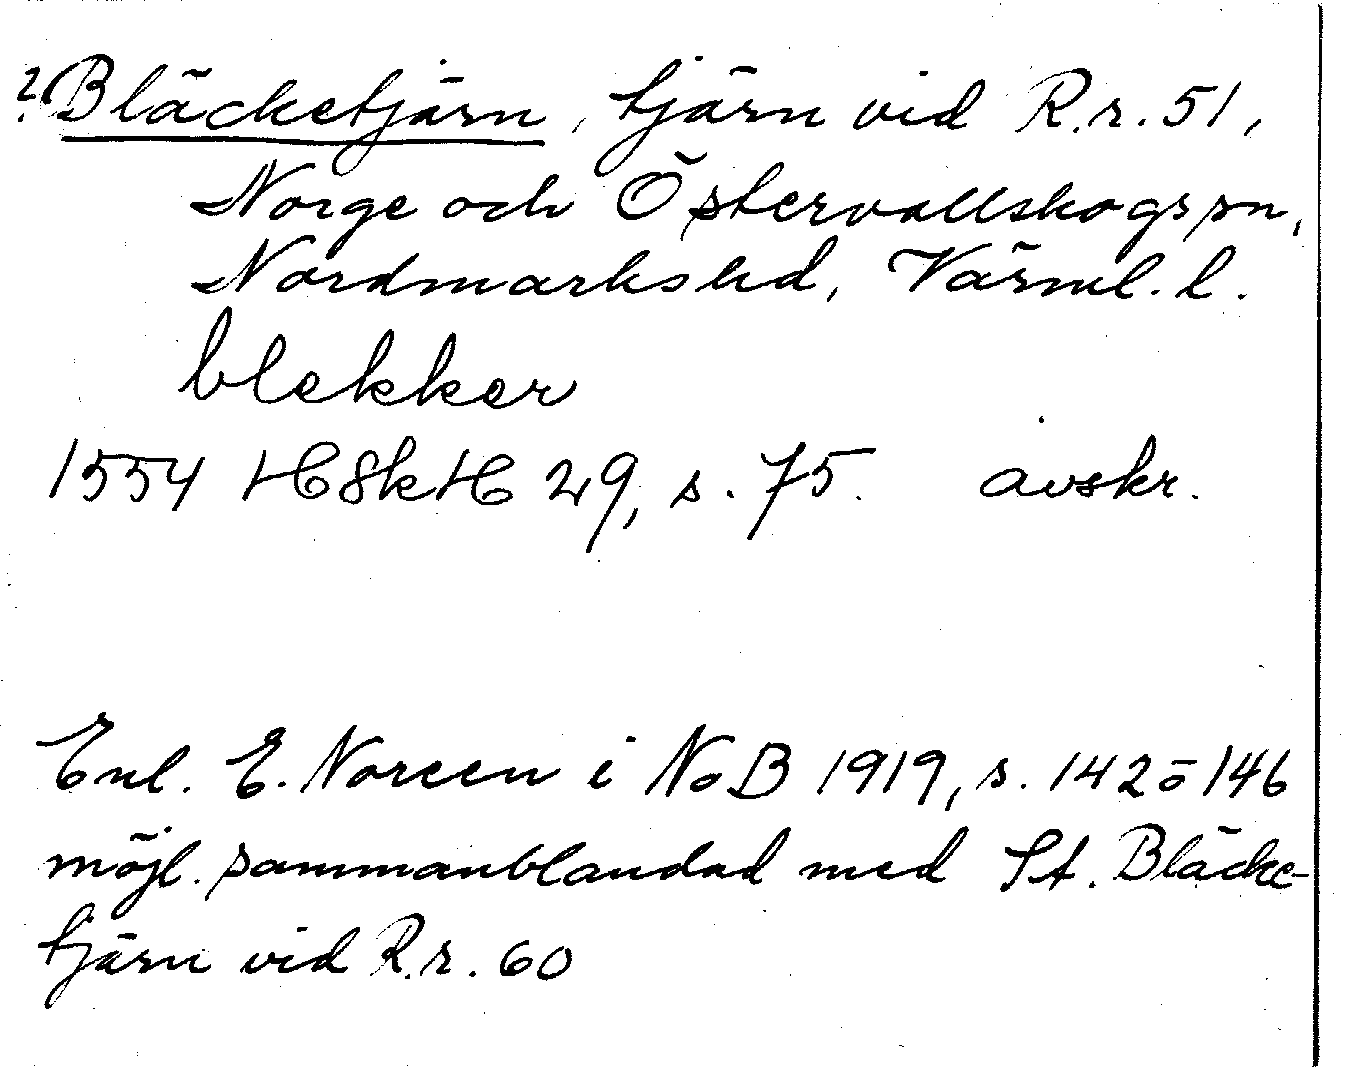 ? Bläcketjärn, tjärn vid R.r. 51,
Norge och Östervallskogs sn,
Nordmarks hd, Värml. l.
blekker
1554 HSkH 29, s. 75. avskr.
Enl. E. Noreen i NoB 1919, s. 142 o 146
möjl. sammanblandad med St. Bläcke-
tjärn vid R.r. 60